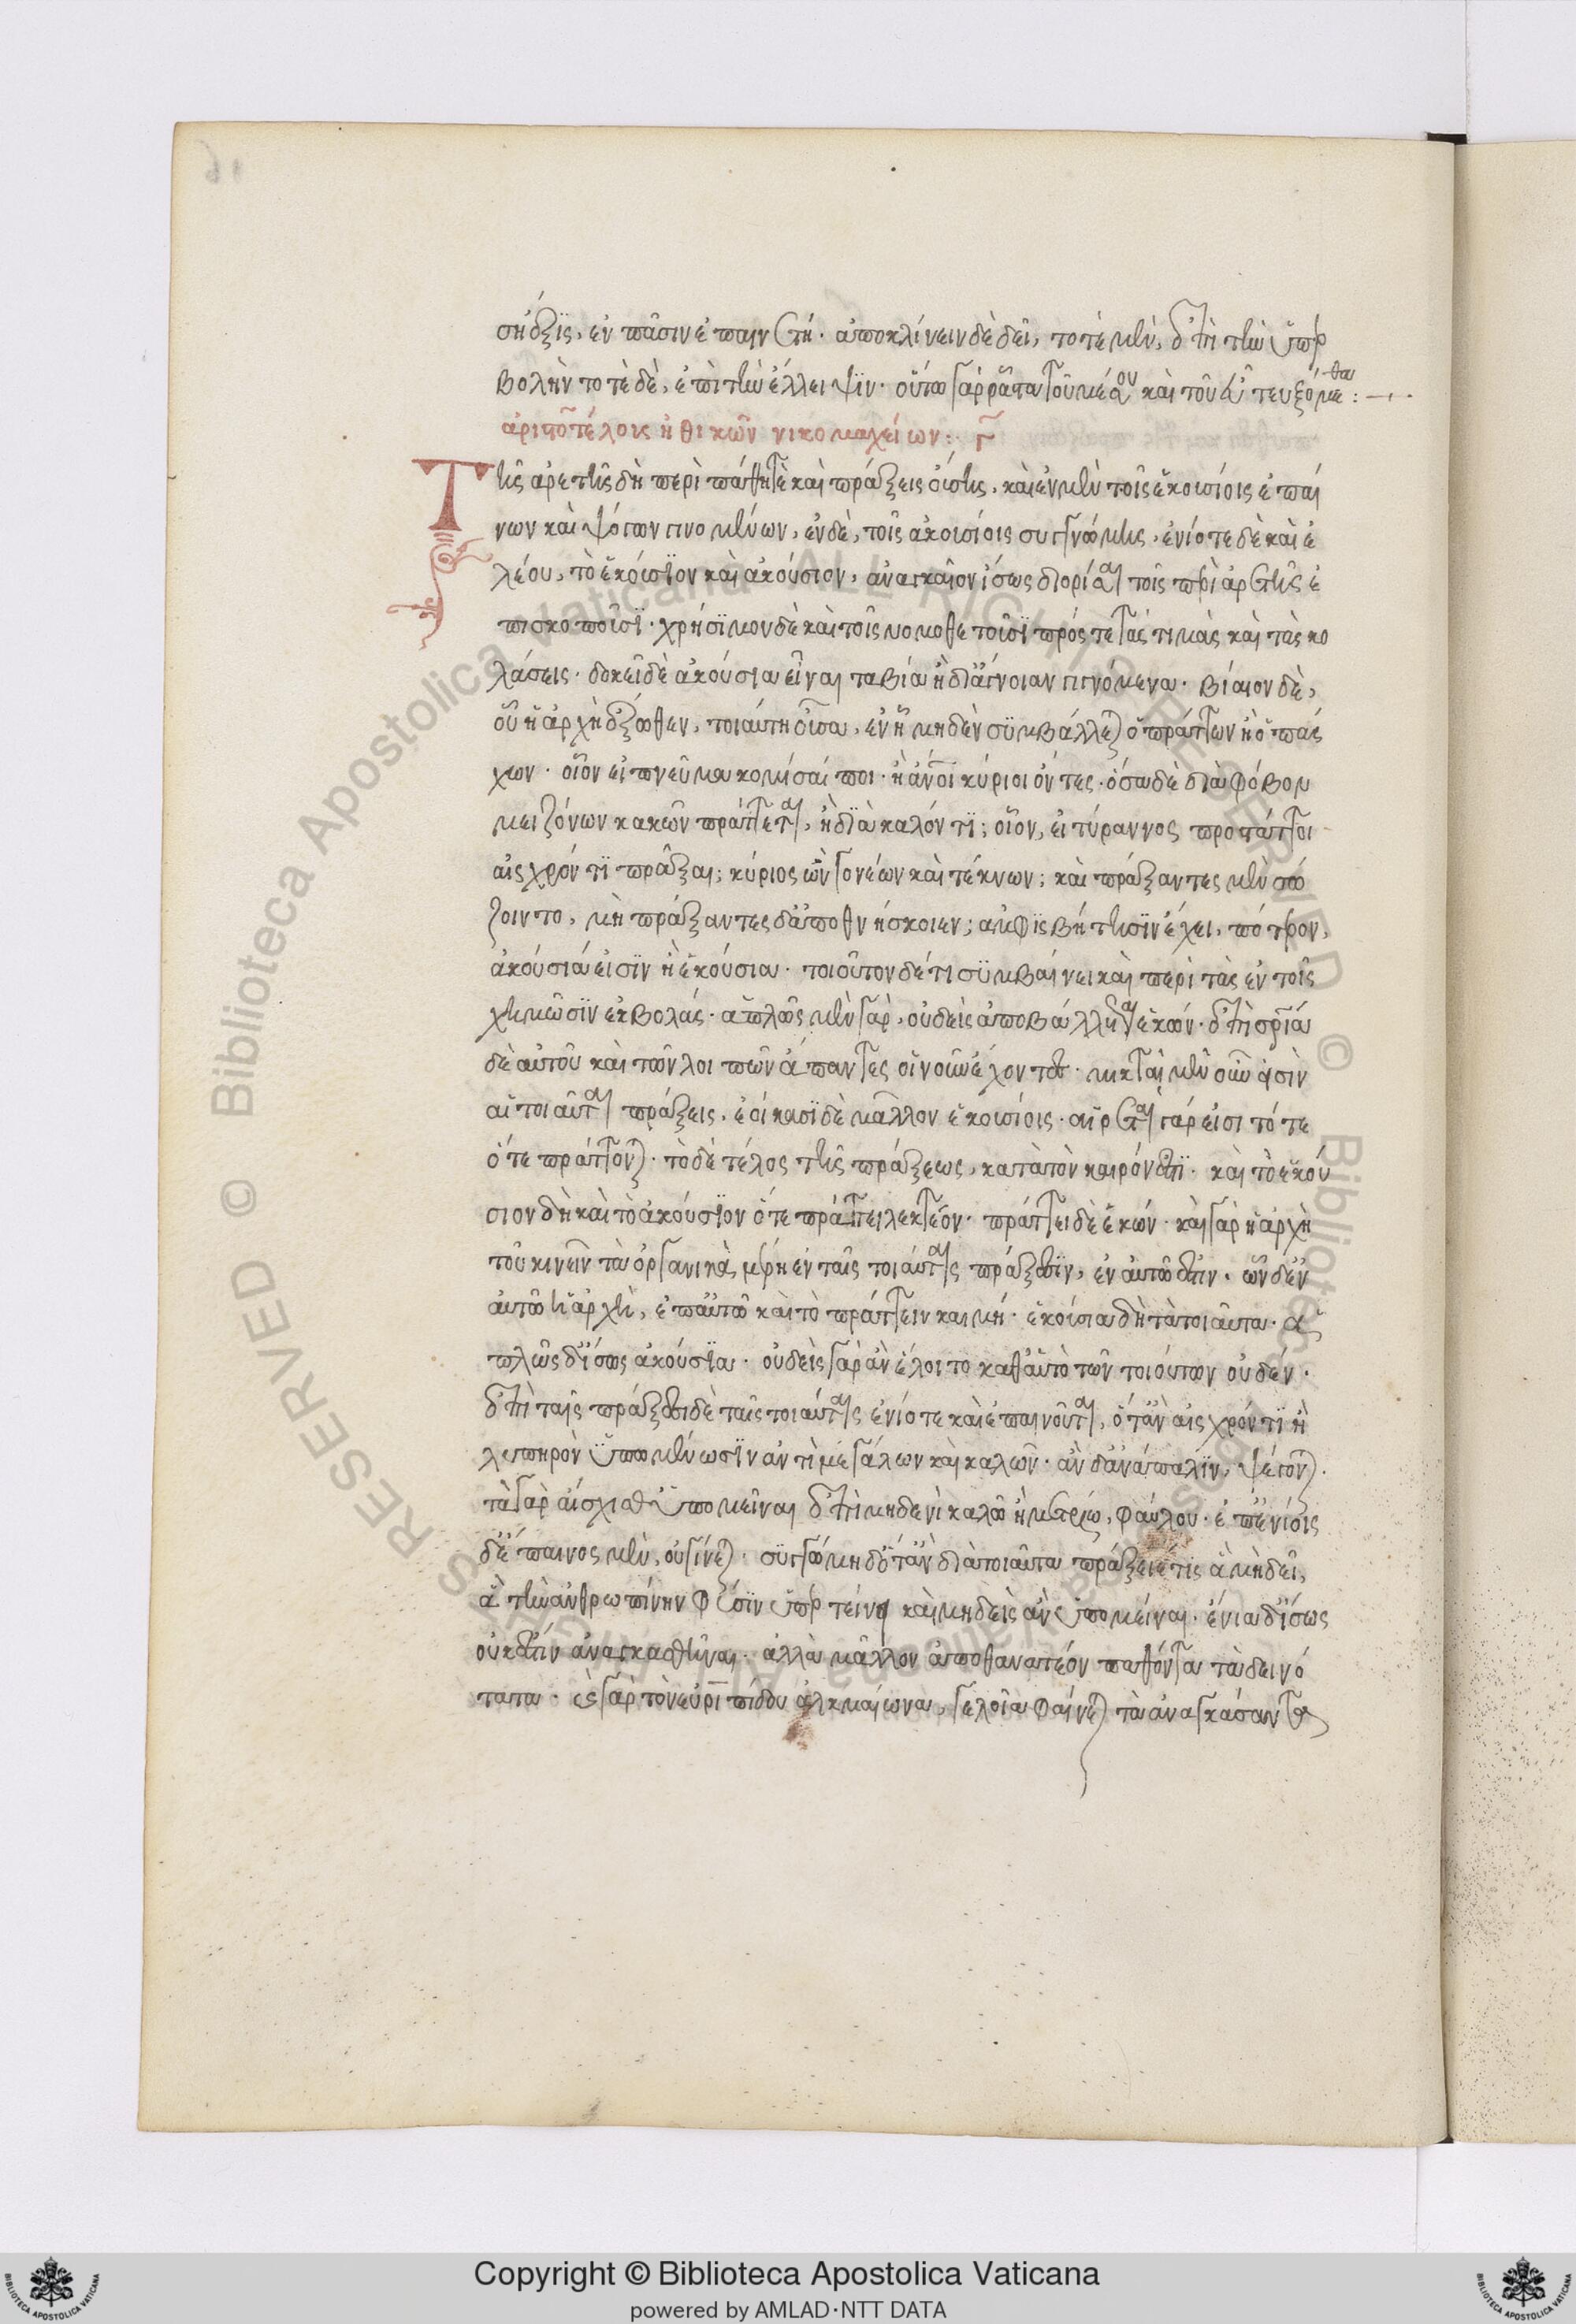 ση ἕξις, ἐν πᾶσιν ἐπαινετή· ἀποκλίνειν δὲ δεῖ, τοτὲ μὲν, ἐπὶ τὴν ὑπερ
βολὴν τοτὲ δὲ, ἐπὶ τὴν ἔλλειψιν· οὕτω γὰρ ῥᾷστα τοῦ μέσου καὶ τοῦ εὖ τευξόμεθα :—
ἀριστοτέλους ἠθικῶν νικομαχείων: Γ
Τῆς ἀρετῆς δὴ περὶ πάθη τὲ καὶ πράξεις οὔσης, καὶ ἐν μὲν τοῖς ἑκουσίοις ἐπαί
νων καὶ ψόγων γινομένων, ἐν δὲ, τοῖς ἀκουσίοις συγγνώμης, ἐνίοτε δὲ καὶ ἐ
λέου, τὸ ἑκούσιον καὶ ἀκούσιον, ἀναγκαῖον ἴσως διορίσαι τοῖς περὶ ἀρετῆς ἐ
πισκοποῦσι· χρήσιμον δὲ καὶ τοῖς νομοθετοῦσι πρός τε τὰς τιμὰς καὶ τὰς κο
λάσεις· δοκεῖ δὲ ἀκούσια εἶναι τα βίᾳ ἢ δι' ἄγνοιαν γιγνόμενα· βίαιον δὲ,
οὗ ἡ ἀρχὴ ἔξωθεν, τοιαύτη οὖσα, ἐν ᾗ μηδὲν συμβάλλεται ὁ πράττων ἢ ὁ πάσ
χων· οἷον εἰ πνεῦμα κομίσαι ποι· ἢ ἄνθρωποι κύριοι ὄντες· ὅσα δὲ διὰ φόβον
μειζόνων κακῶν πράττεται, ἢ διὰ καλόν τι; οἷον, εἰ τύραννος προστάττοι
αἰσχρόν τι πρᾶξαι; κύριος ὢν γονέων καὶ τέκνων; καὶ πράξαντες μὲν σώ
ζοιντο, μὴ πράξαντες δ' ἀποθνήσκοιεν; ἀμφισβήτησιν ἔχει, πότερον,
ἀκούσιά εἰσιν ἢ ἑκούσια· τοιοῦτον δέ τι συμβαίνει καὶ περὶ τὰς ἐν τοῖς
χειμῶσιν ἐκβολάς· ἁπλῶς μὲν γὰρ, οὐδεὶς ἀποβάλλεται ἑκών· ἐπὶ σωτηρίᾳ
δὲ αὑτοῦ καὶ τῶν λοιπῶν ἅπαντες οἱ νοῦν ἔχοντες· μικταὶ μὲν οὖν εἰσὶν
αἱ τοιαῦται πράξεις, ἐοίκασι δὲ μᾶλλον ἑκουσίοις· αἱρεταὶ γάρ εἰσι τότε
ὅτε πράττονται· τὸ δὲ τέλος τῆς πράξεως, κατὰ τὸν καιρόν ἐστι· καὶ τὸ ἑκού
σιον δὴ καὶ τὸ ἀκούσιον ὅτε πράττει λεκτέον· πράττει δὲ ἑκών· καὶ γὰρ ἡ ἀρχὴ
τοῦ κινεῖν τὰ ὀργανικὰ μέρη ἐν ταῖς τοιαύταις πράξεσιν, ἐν αὐτῷ ἐστιν· ὧν δ' ἐν
αὐτῷ ἡ ἀρχὴ, ἐπ' αὐτῷ καὶ τὸ πράττειν και μή· ἑκούσια δὴ τὰ τοιαῦτα· ἁ
πλῶς δ' ἴσως ἀκούσια· οὐδεὶς γὰρ ἂν ἕλοιτο καθ' αὑτὸ τῶν τοιούτων οὐδέν·
ἐπὶ ταῖς πράξεσι δὲ ταῖς τοιαύταις ἐνίοτε καὶ ἐπαινοῦνται, ὅταν αἰσχρόν τι ἢ
λυπηρὸν ὑπομένωσιν ἀντὶ μεγάλων καὶ καλῶν· ἂν δ' ἀνάπαλιν, ψέγονται·
τὰ γὰρ αἴσχισθ' ὑπομεῖναι ἐπὶ μηδενὶ καλῷ ἢ μετρίῳ, φαύλου· ἐπ' ἐνίοις
δ' ἔπαινος μὲν, οὐ γίνεται· συγγνώμη δ' ὅταν διὰ τοιαῦτα πράξειέ τις ἃ μὴ δεῖ,
ἃ τὴν ἀνθρωπίνην φύσιν ὑπερτείνει καὶ μηδεὶς ἂν ὑπομείναι· ἔνια δ' ἴσως
οὐκ ἔστιν ἀναγκασθῆναι· ἀλλὰ μᾶλλον ἀποθανατέον παθόντα τὰ δεινό
τατα· καὶ γὰρ τὸν εὐριπίδου ἀλκμαίωνα, γελοῖα φαίνεται τὰ ἀναγκάσαντα